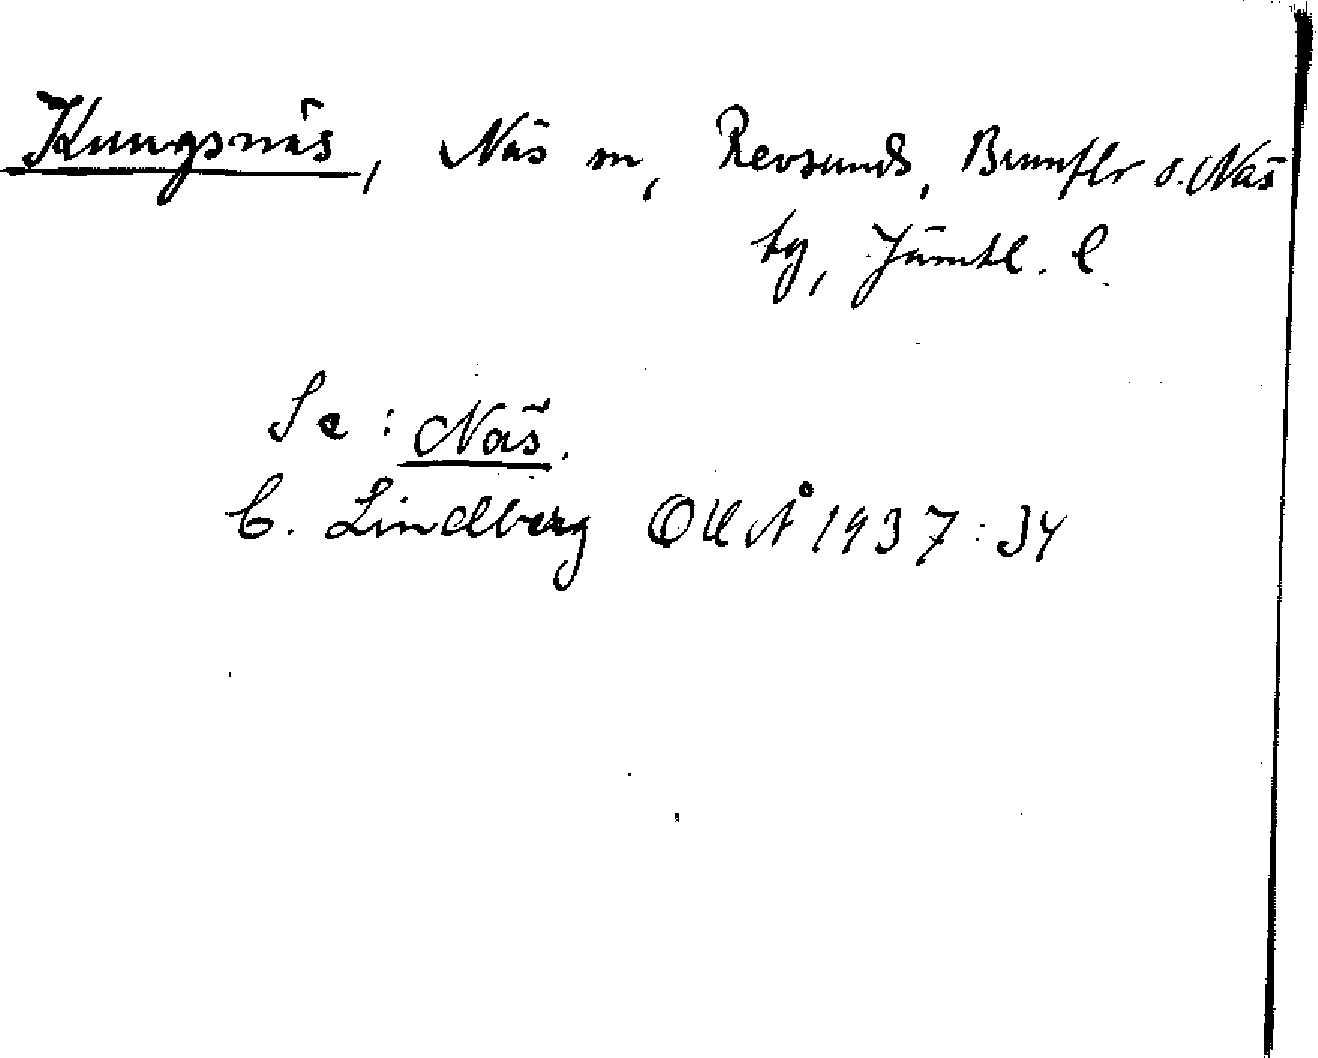 Kungsnäs, Näs sn, Revsunds, Brunflo o. Näs
tg, Jämtl. l.
Se: Näs.
C. Lindberg OUÅ 1937:34